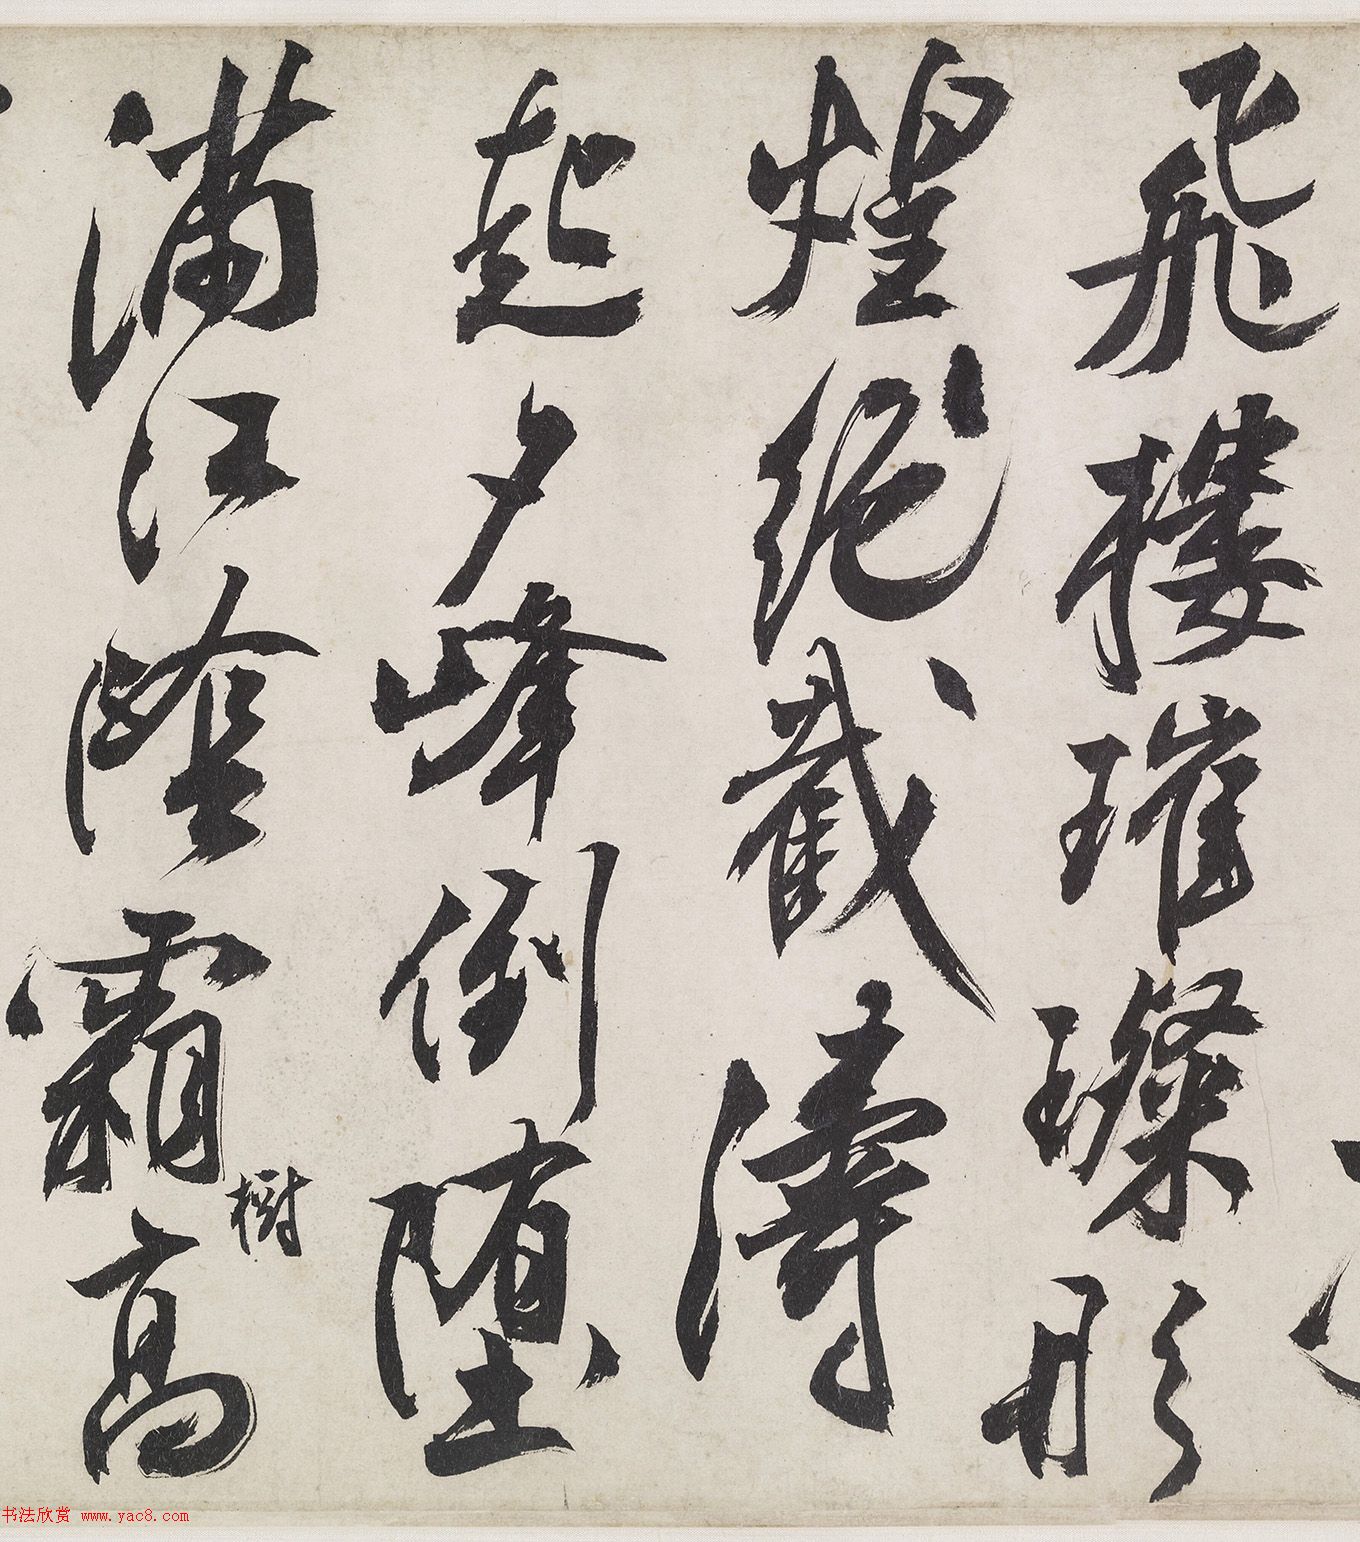 飛樓璀璨彤
煌絕、截濤
起夕峰倒墮
滿江陰霜高
樹
书法欣赏 www.yac8.com